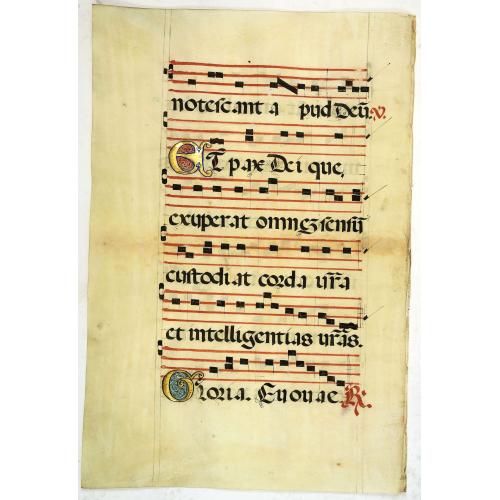 notescant apud Deū. V.
Et pax Dei que,
exuperat omnẽ sensũ
custodiat corda vr̃a
et intelligentias vr̃as.
Gloria. Euouae. R.